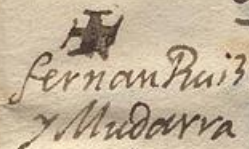 fernan Ruiz
y Mudarra